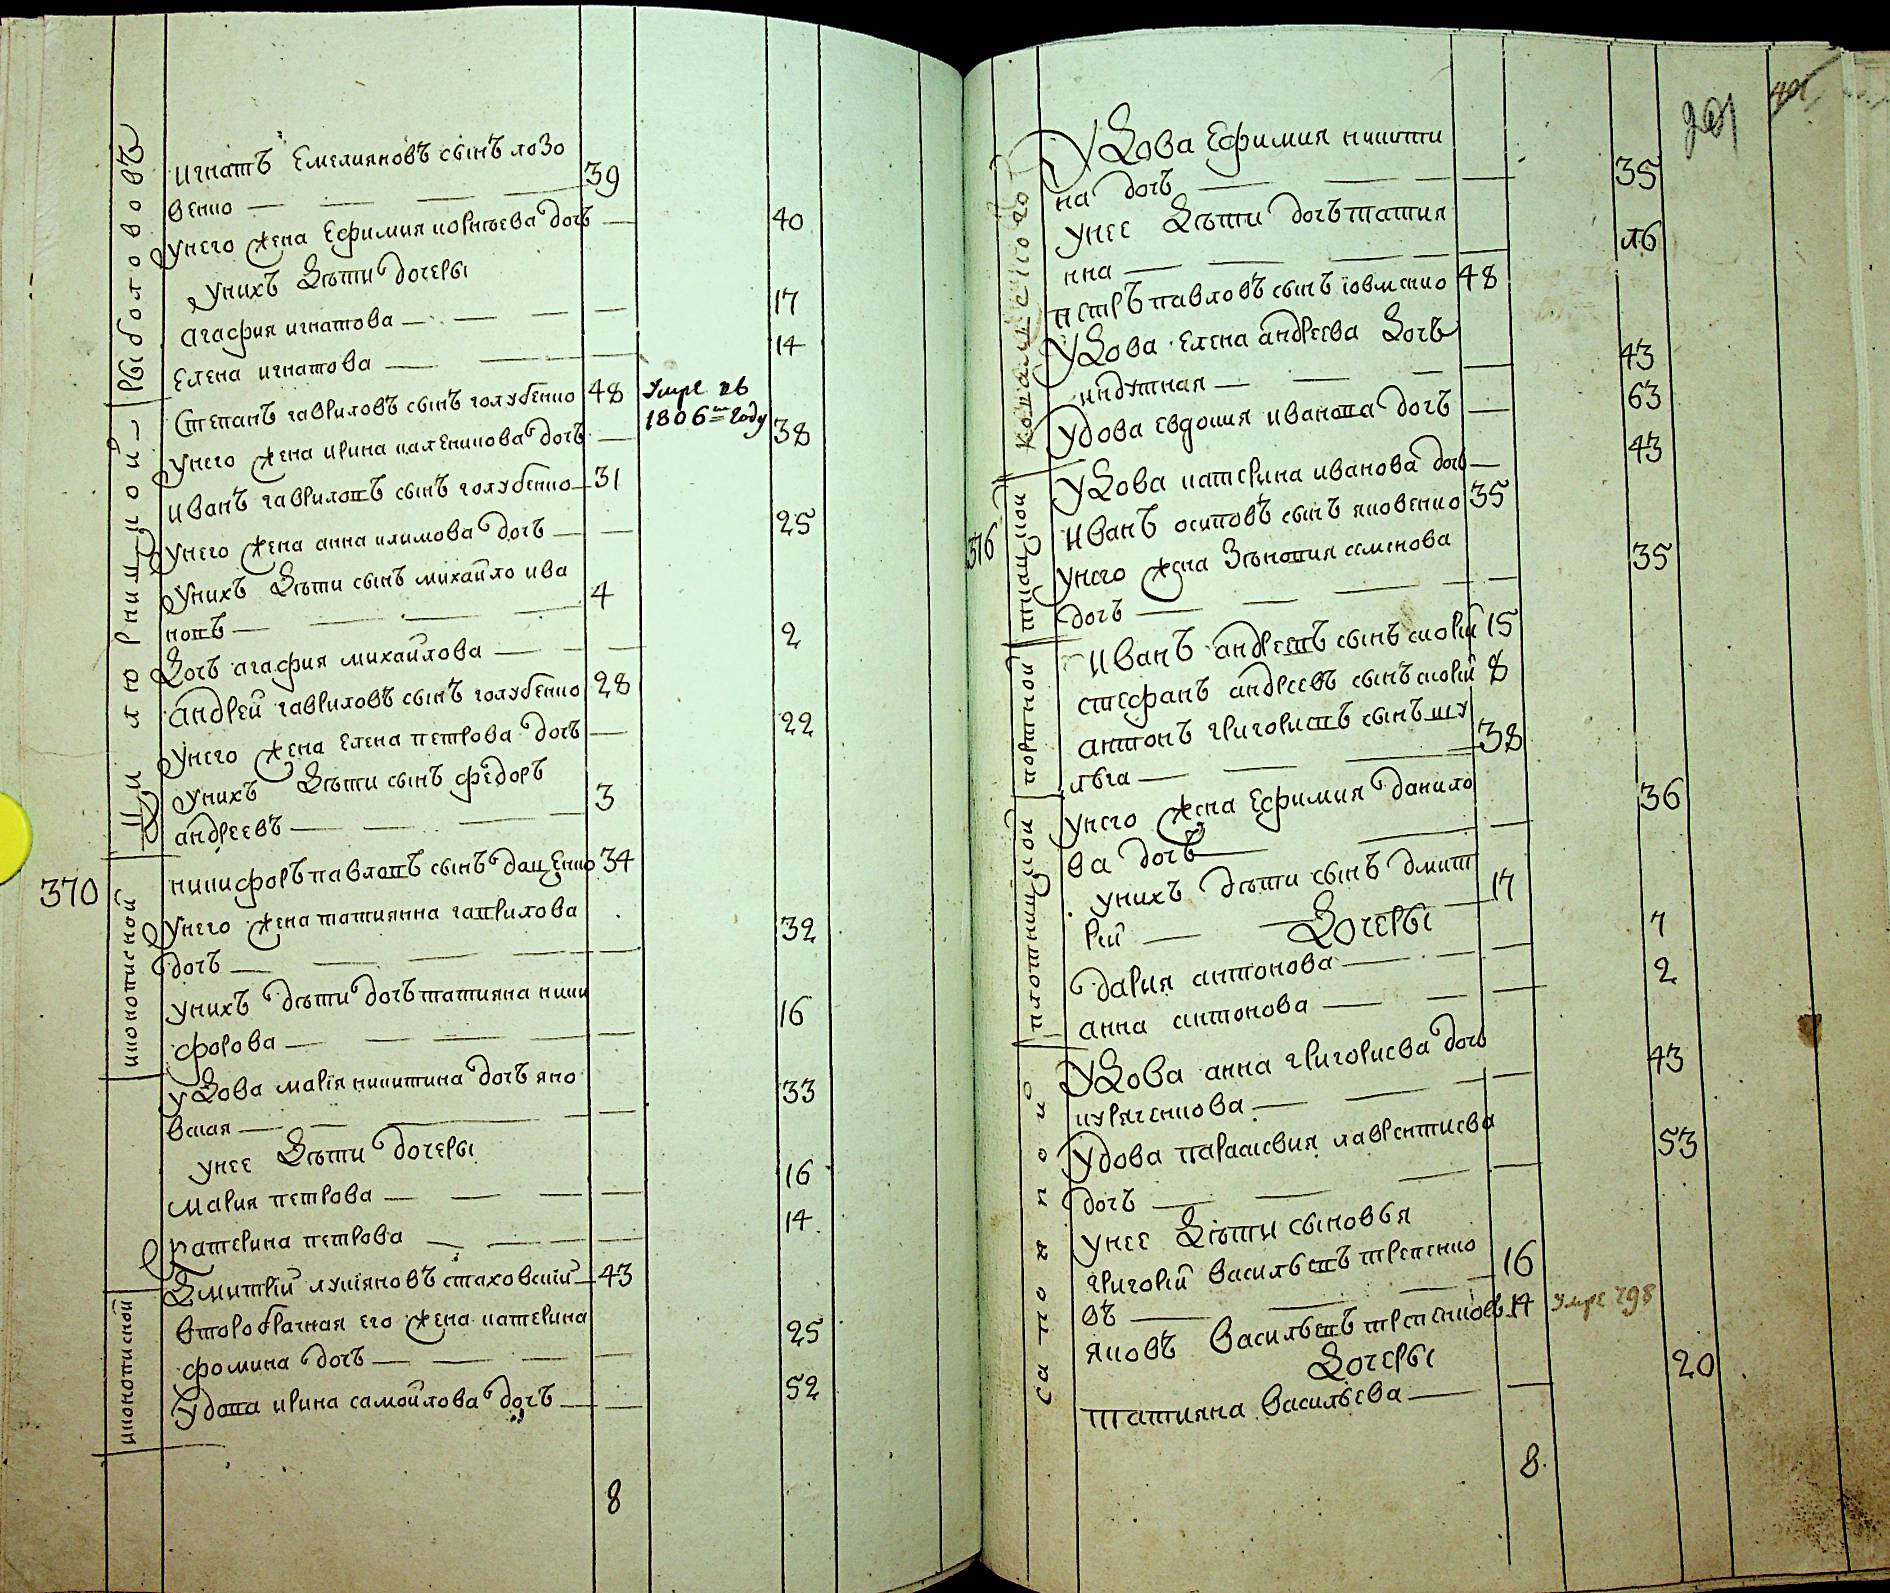 рыболововъ
игнатъ Емелияновъ сынъ лозо 39
венко
унего жена Ефимия корнѣева дочь 40
унихъ дѣти дочеры
агафия игнатова 17
Елена игнатова 14
Степанъ гавриловъ сынъ голубенко 48 умре въ
1806м году
унего жена ирина каленикова дочь 38
иванъ гавриловъ сынъ голубенко 31
унего жена анна климова дочь 25
унихъ дѣти сынъ михайло ива 4
новъ
дочъ агафия михайлова 2
андрей гавриловъ сынъ голубенко 28
унего жена Елена петрова дочь 22
унихъ дѣти сынъ федоръ 3
андреевъ
370 иконописной
никифоръ павловъ сынъ даценко 34
унего жена татиянна гаврилова 32
дочъ
унихъ дѣти дочъ татияна ники 16
форова
удова марїя никитина дочъ яко 33
вкая
унее дѣти дочеры
мария петрова 16
катерина петрова 14
иконописной
дмитрїй лукіяновъ стаховскїй 43
второбрачная его жена катерина 25
фомина дочъ
удова ирина самойлова дочъ 52
8
201
удова Ефимия никити 35
на дочъ
унее дѣти дочъ татия 16
нна
петръ павловъ сынъ їовженко 48
удова Елена андреева дочь 43
удова евдокия иванова дочъ 63
удова катерина иванова дочь 43
376 ткацкой
иванъ осиповъ сынъ яковенко 35
унего жена Зѣновия семенова 35
дочъ
портной
иванъ андреевъ сынъ скорик 15
стефанъ андреевъ сынъ скорик 8
антонъ григориевъ сынъ шу 38
льга
плотницкой
унего жена Ефимия данило 36
ва дочъ
унихъ дѣти сынъ дмит 17
рий дочеры
дария антонова 7
анна антонова 2
сапожной
удова анна григориева дочь 43
удова параскевия лаврентиева 53
дочъ
унее дѣти сыновья
григорий васильевъ трепенко 16
въ
яковъ васильевъ трепенковъ 14 умре 798
дочеры
татияна васильева 20
8